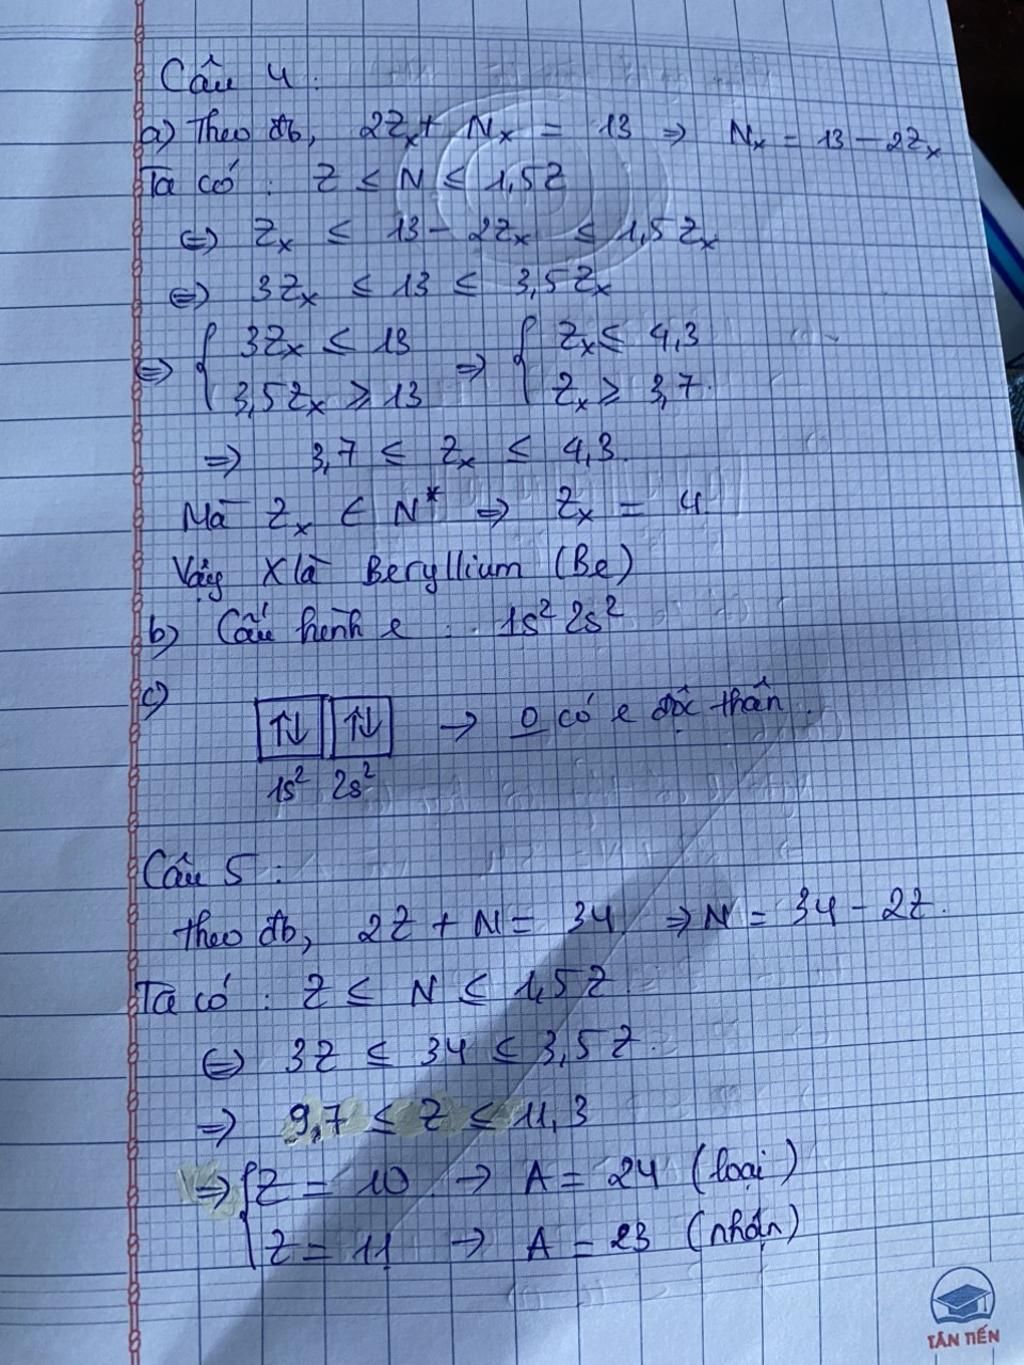 Câu 4:
a) Theo đb, 2Zₓ + Nₓ = 13 ⇒ Nₓ = 13 - 2Zₓ
Ta có : Z ≤ N ≤ 1,5Z
⇔ Zₓ ≤ 13 - 2Zₓ ≤ 1,5Zₓ
⇔ 3Zₓ ≤ 13 ≤ 3,5Zₓ
⇔ { 3Zₓ ≤ 13 ⇒ { Zₓ ≤ 4,3
3,5Zₓ ≥ 13 Zₓ ≥ 3,7.
⇒ 3,7 ≤ Zₓ ≤ 4,3.
Mà Zₓ ∈ N* ⇒ Zₓ = 4.
Vậy X là Beryllium (Be)
b) Cấu hình e : 1s² 2s²
c)
↑↓ ↑↓ → 0 có e độc thân.
1s² 2s²
Câu 5 :
Theo đb, 2Z + N = 34 ⇒ N = 34 - 2Z.
Ta có : Z ≤ N ≤ 1,5Z.
⇔ 3Z ≤ 34 ≤ 3,5Z.
⇒ 9,7 ≤ Z ≤ 11,3
⇒ { Z = 10 → A = 24 (loại)
Z = 11 → A = 23 (nhận)
TÂN TIẾN